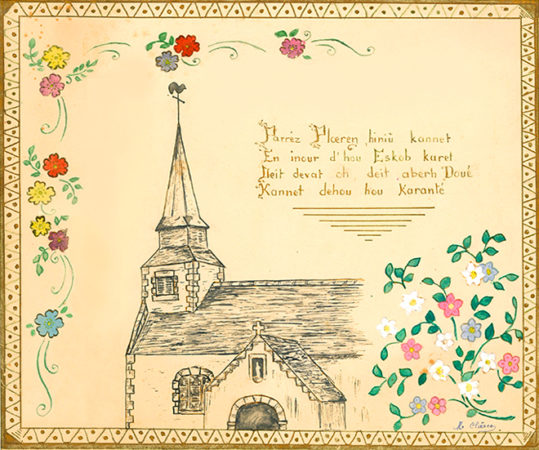 Parréz Ploeren hiniù kannet
En inour d'hou Eskob karet
Neit devat oh, deit aberh Doué
Kannet dehou hou Karanté